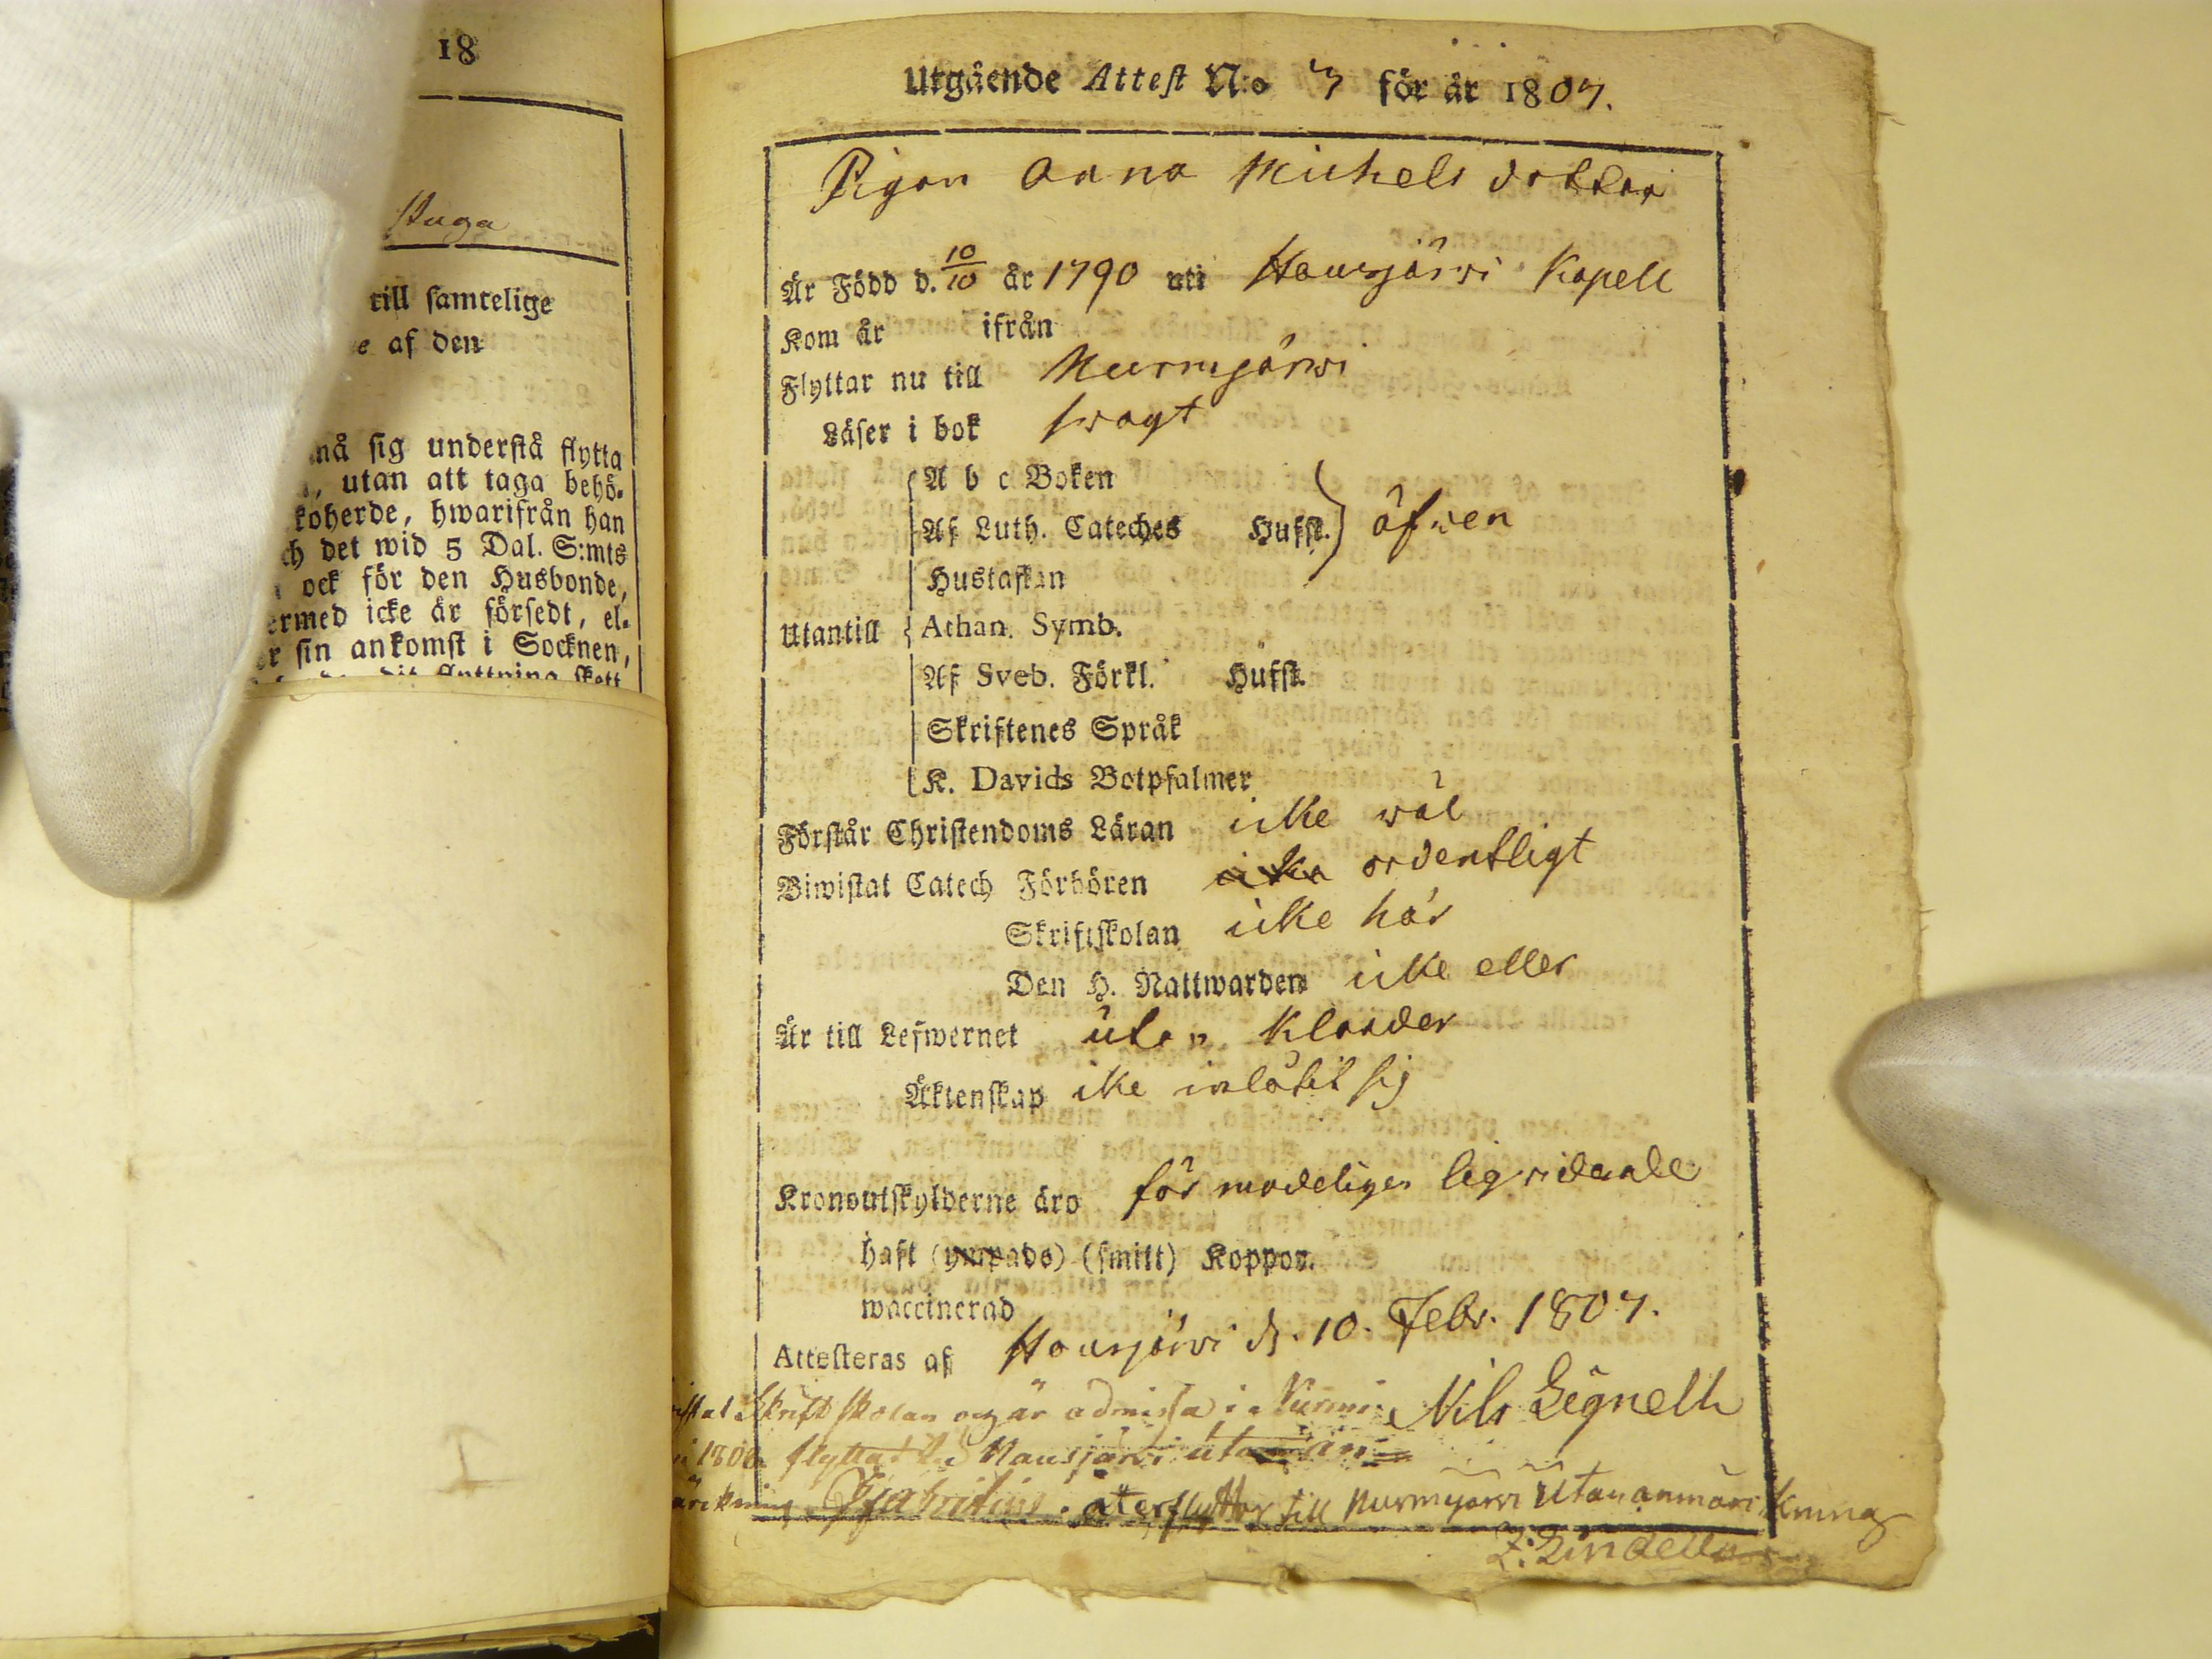 18
stuga
till samtelige
af den
må sig understå flytta
utan att taga behö-
koherde, hwarifrån han
ch det wid 5 Dal. S:mts
ock för den Husbonde,
ermed icke är försedt, el-
er sin ankomst i Socknen,
dit flyttning skett
Utgående Attest N:o 7 för år 1807.
Pigan Anna Michels dotter
Är Född d. 10/10 år 1790 uti Hausjärwi Kapell
Kom år ifrån
Flyttar nu till Nurmjärwi
Läser i bok swagt
A b c Boken
Af Luth. Cateches Hufst. äfwen
Hustaflan
Utantill Athan. Symb.
Af Sveb. Förkl. Hufst.
Skriftenes Språk
K. Davids Botpsalmer
Förstår Christendoms Läran icke wäl
Biwistat Catech Förhören icke ordentligt
Skriftskolan icke här
Den H. Nattwarden icke eller
Är till Lefwernet utan klander
Äktenskap icke inlåtit sig
Kronoutskylderne äro förmodeligen
haft (ympade) (smitt) Koppor.
waccinerad
Attesteras af Hausjärwi d. 10. Febr. 1807.
Skriftskolan och är admissa i Nurmi- Nils Legnell
1808 flyttat till Hausjärwi utan an-
märkning. återflyttar till Nurmijärvi utan anmärkning